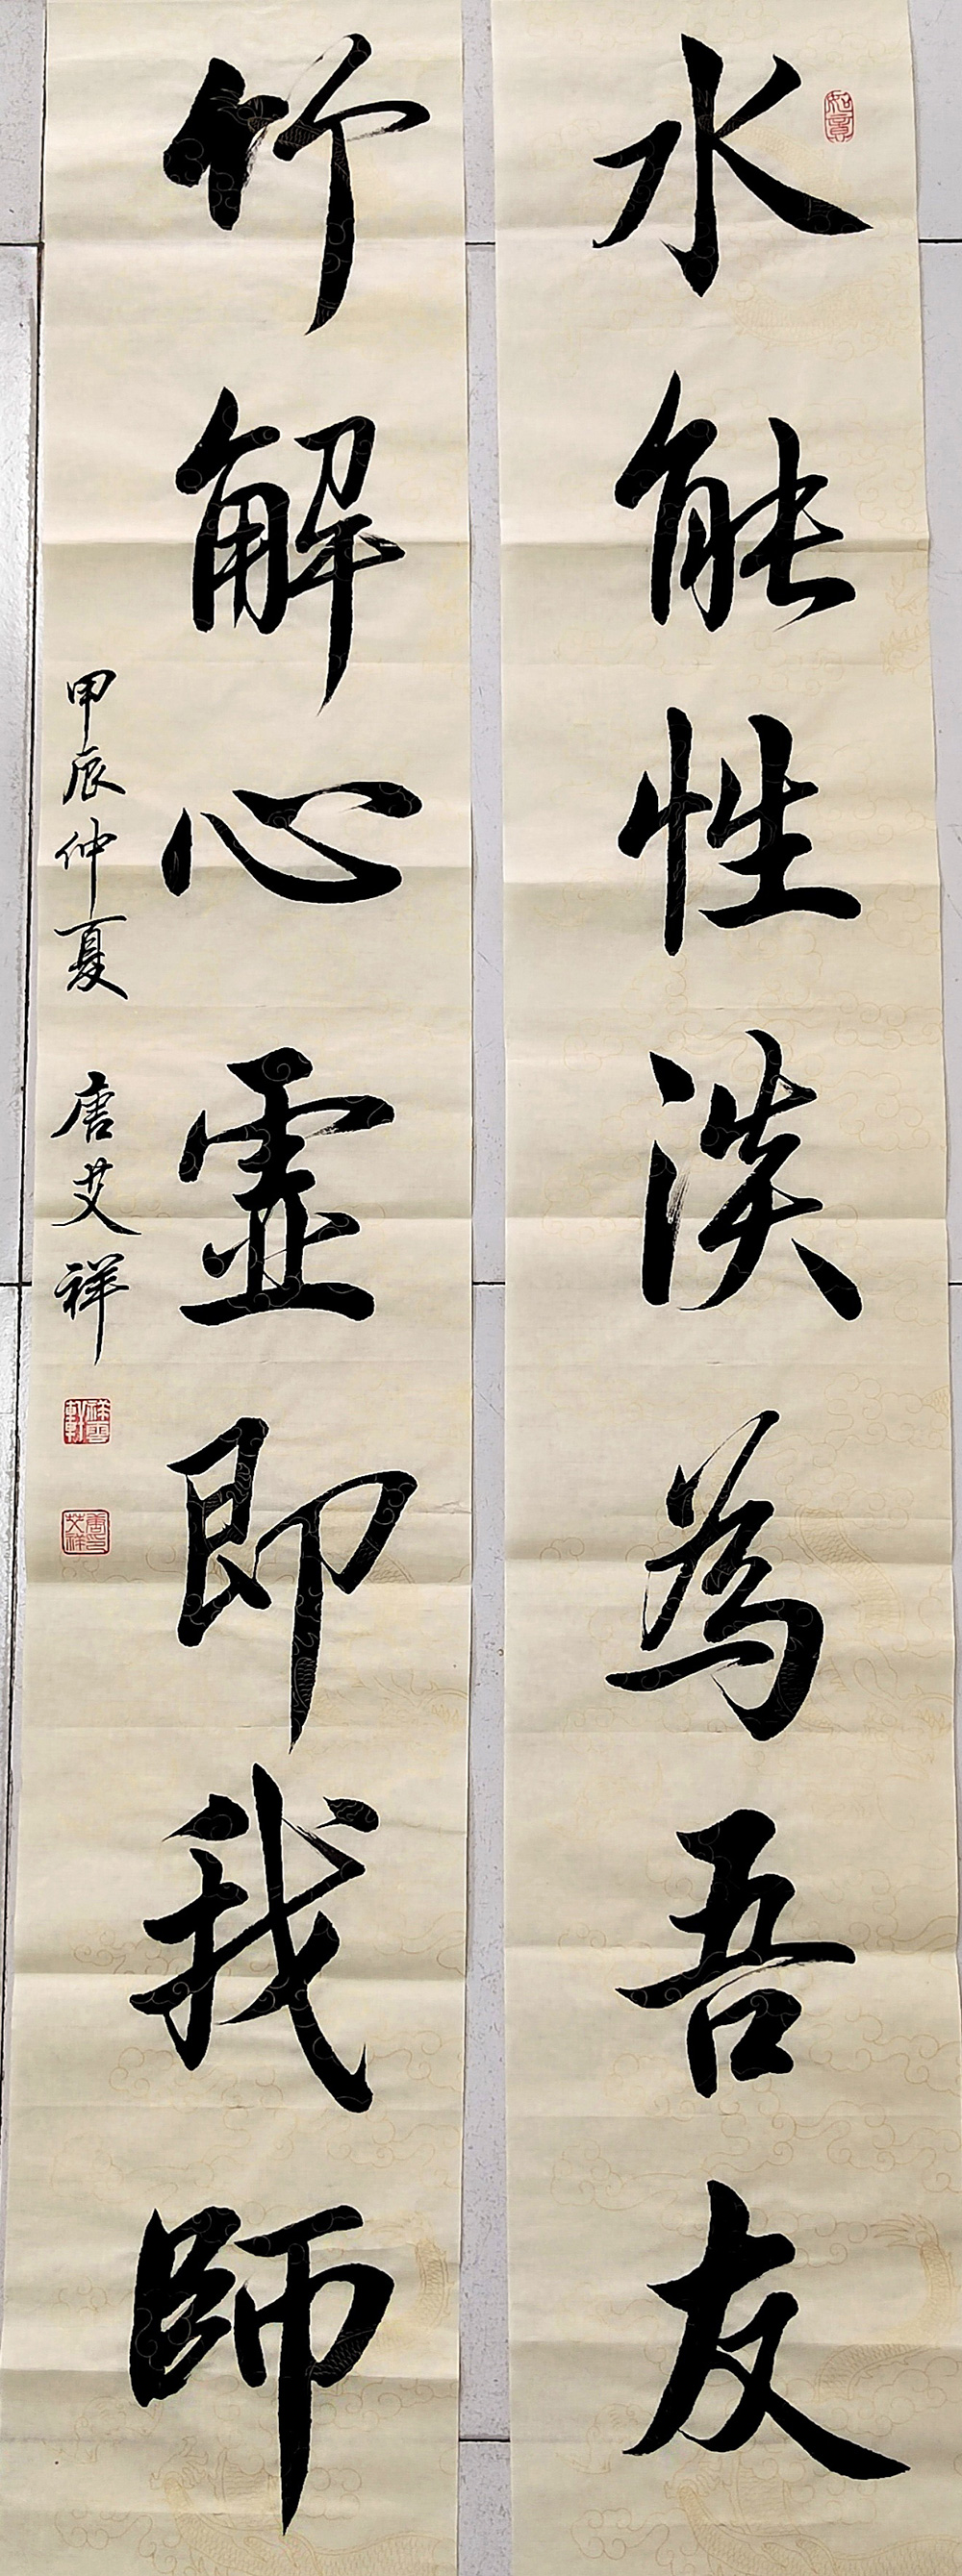 水能性淡為吾友
竹解心虛即我師
甲辰仲夏 唐艾祥
如意
祥雲軒
唐艾祥印